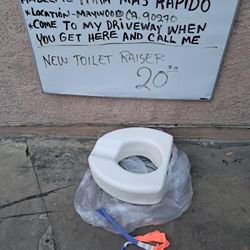 PARA MAS RAPIDO
*LOCATION-MAYWOOD CA. 90270
*COME TO MY DRIVEWAY WHEN
YOU GET HERE AND CALL ME
NEW TOILET RAISER
20⁰⁰